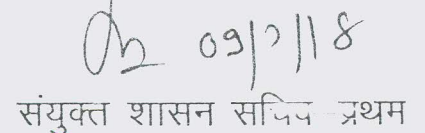 09/2/18
संयुक्त शासन सचिव प्रथम